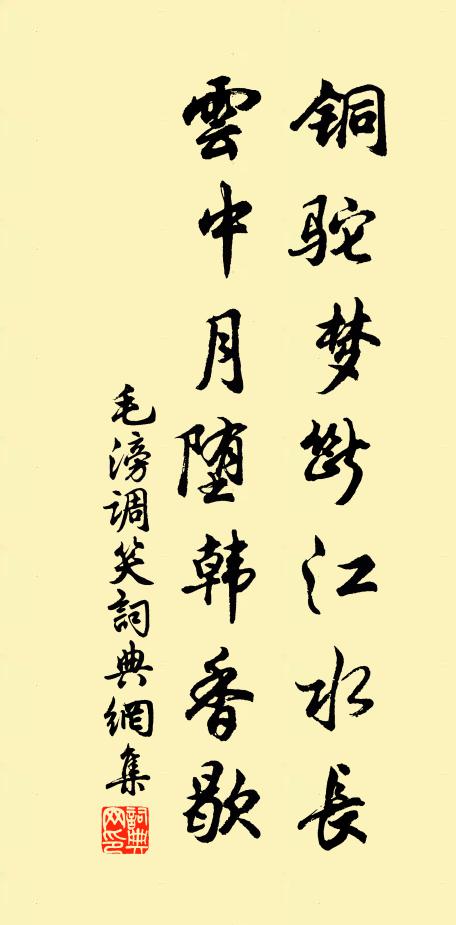 铜驼梦断江水長
雲中月堕韩香歇
毛滂调笑詞典網集
詞典网印